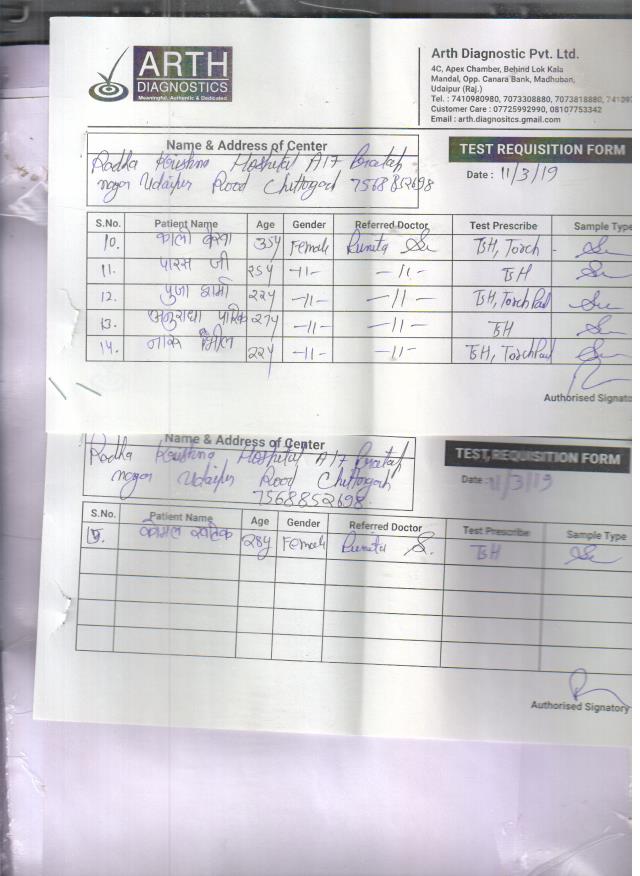 ARTH
DIAGNOSTICS
Meaningful, Authentic & Dedicated
Arth Diagnostic Pvt. Ltd.
4C, Apex Chamber, Behind Lok Kala
Mandal, Opp. Canara Bank, Madhuban,
Udaipur (Raj.)
Tel. : 7410980980, 7073308880, 7073818880,
Customer Care : 07725992990, 08107753342
Email : arth.diagnositcs.gmail.com
Name & Address of Center
TEST REQUISITION FORM
Radha Krushna Hospital A17
nagar Udaipur Road Chittogarh 7568852698
Date : 11/3/19
S.No. Patient Name Age Gender Referred Doctor Test Prescribe Sample Type
10. 35Y Female Punita TSH, Torch -
11. पारस जी 25Y -11- -11- TSH
12. पुजा शर्मा 22Y -11- -11- TSH, Torch
13. अनुराधा 27Y -11- -11- TSH
14. भील 22Y -11- -11- TSH, Torch
Authorised Signato
Name & Address of Center
TEST REQUISITION FORM
Radha Krushna Hospital A17
nagar Udaipur Road Chittogarh
7568852698
Date : 11/3/19
S.No. Patient Name Age Gender Referred Doctor Test Prescribe Sample Type
कोमल खटिक 28Y Female Punita S. TSH
Authorised Signatory